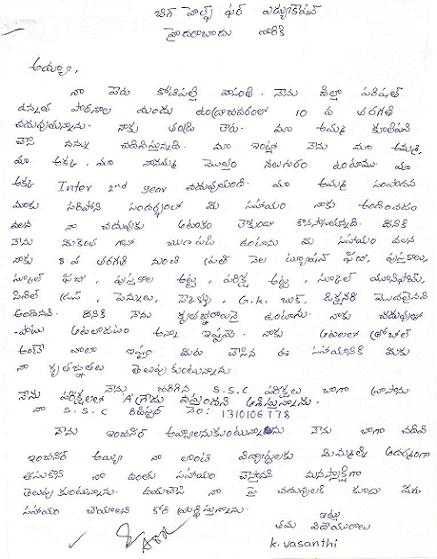 బిగ్ హెల్ప్ ఫర్ ఎడ్యుకేషన్
హైదరాబాదు వారికి
అయ్యా,
నా పేరు కోటిపల్లి వాసంతి. నేను జిల్లా పరిషత్
ఉన్నత పాఠశాల యందు ఉండ్రాజవరంలో 10 వ తరగతి
చదువుచున్నాను. నాకు తండ్రి లేరు. మా అమ్మ కూలిపని
చేసి నన్ను చదివిస్తున్నది. మా ఇంట్లో నేను మా అమ్మ,
మా అక్క, మా నానమ్మ మొత్తం నలుగురం ఉంటాము. మా
అక్క Inter 2nd year చదువుతుంది. మా అమ్మ సంపాదన
మాకు సరిపోని సందర్భంలో మీ సహాయం నాకు అందించడం
వలన నా చదువుకు ఆటంకం లేకుండా కొనసాగుతున్నది. దీనికి
నేను మీకెంత గానో ఋణపడి ఉంటాను మీ సహాయం వలన
నాకు 8 వ తరగతి నుంచి ప్రతి నెల ట్యూషన్ ఫీజు, పుస్తకాలు,
స్కూల్ ఫీజు, పుస్తకాల అట్ట, పరీక్ష అట్ట, స్కూల్ యూనిఫామ్,
పెన్సిల్ బాక్స్, పెన్నులు, G.K. బుక్, డిక్షనరీ మొదలైనవి
అందినవి. దీనికి నేను కృతజ్ఞురాలనై ఉంటాను. నాకు చదువుతో
-పాటు ఆటలాడటం అన్నా ఇష్టమే. నాకు ఆటలలో త్రోబాల్
అంటే చాలా ఇష్టం మీరు చేసిన ఈ సహాయానికి మీకు
నా కృతజ్ఞతలు తెలుపు కుంటున్నాను.
నేను జరిగిన S.S.C పరీక్షలు బాగా వ్రాసాను.
నేను పరీక్షలలో A గ్రేడు వస్తుందని ఆశిస్తున్నాను.
నా S.S.C రిజిస్టర్ నెం: 1310106778
నేను ఇంజనీర్ అవ్వాలనుకుంటున్నాను నేను బాగా చదివి
ఇంజనీర్ అయ్యి నా లాంటి విద్యార్థులకు మిమ్మల్ని ఆదర్శంగా
తీసుకొని నా వంతు సహాయం చేస్తానని మనస్ఫూర్తిగా
తెలుపు కుంటున్నాను. దయచేసి నా పై చదువులకి కూడా మీరు
సహాయం చేయాలని కోరి ప్రార్థిస్తున్నాను.
ఇట్లు
తమ విధేయురాలు
K. Vasanthi